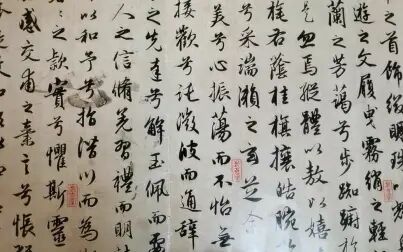 之首飾綴明珠以
遊之文履曳霧綃之輕
蘭之芳藹兮步踟躕於
是忽焉縱體以敖以嬉
旄右蔭桂旗攘皓腕
兮采湍瀨之玄芝余
美兮心振蕩而不怡
接歡兮託微波而通辭
之先達兮解玉佩而要
人之信脩羌習禮而明
以和予兮指潛川而為
之款實兮懼斯靈
感交甫之棄言兮悵